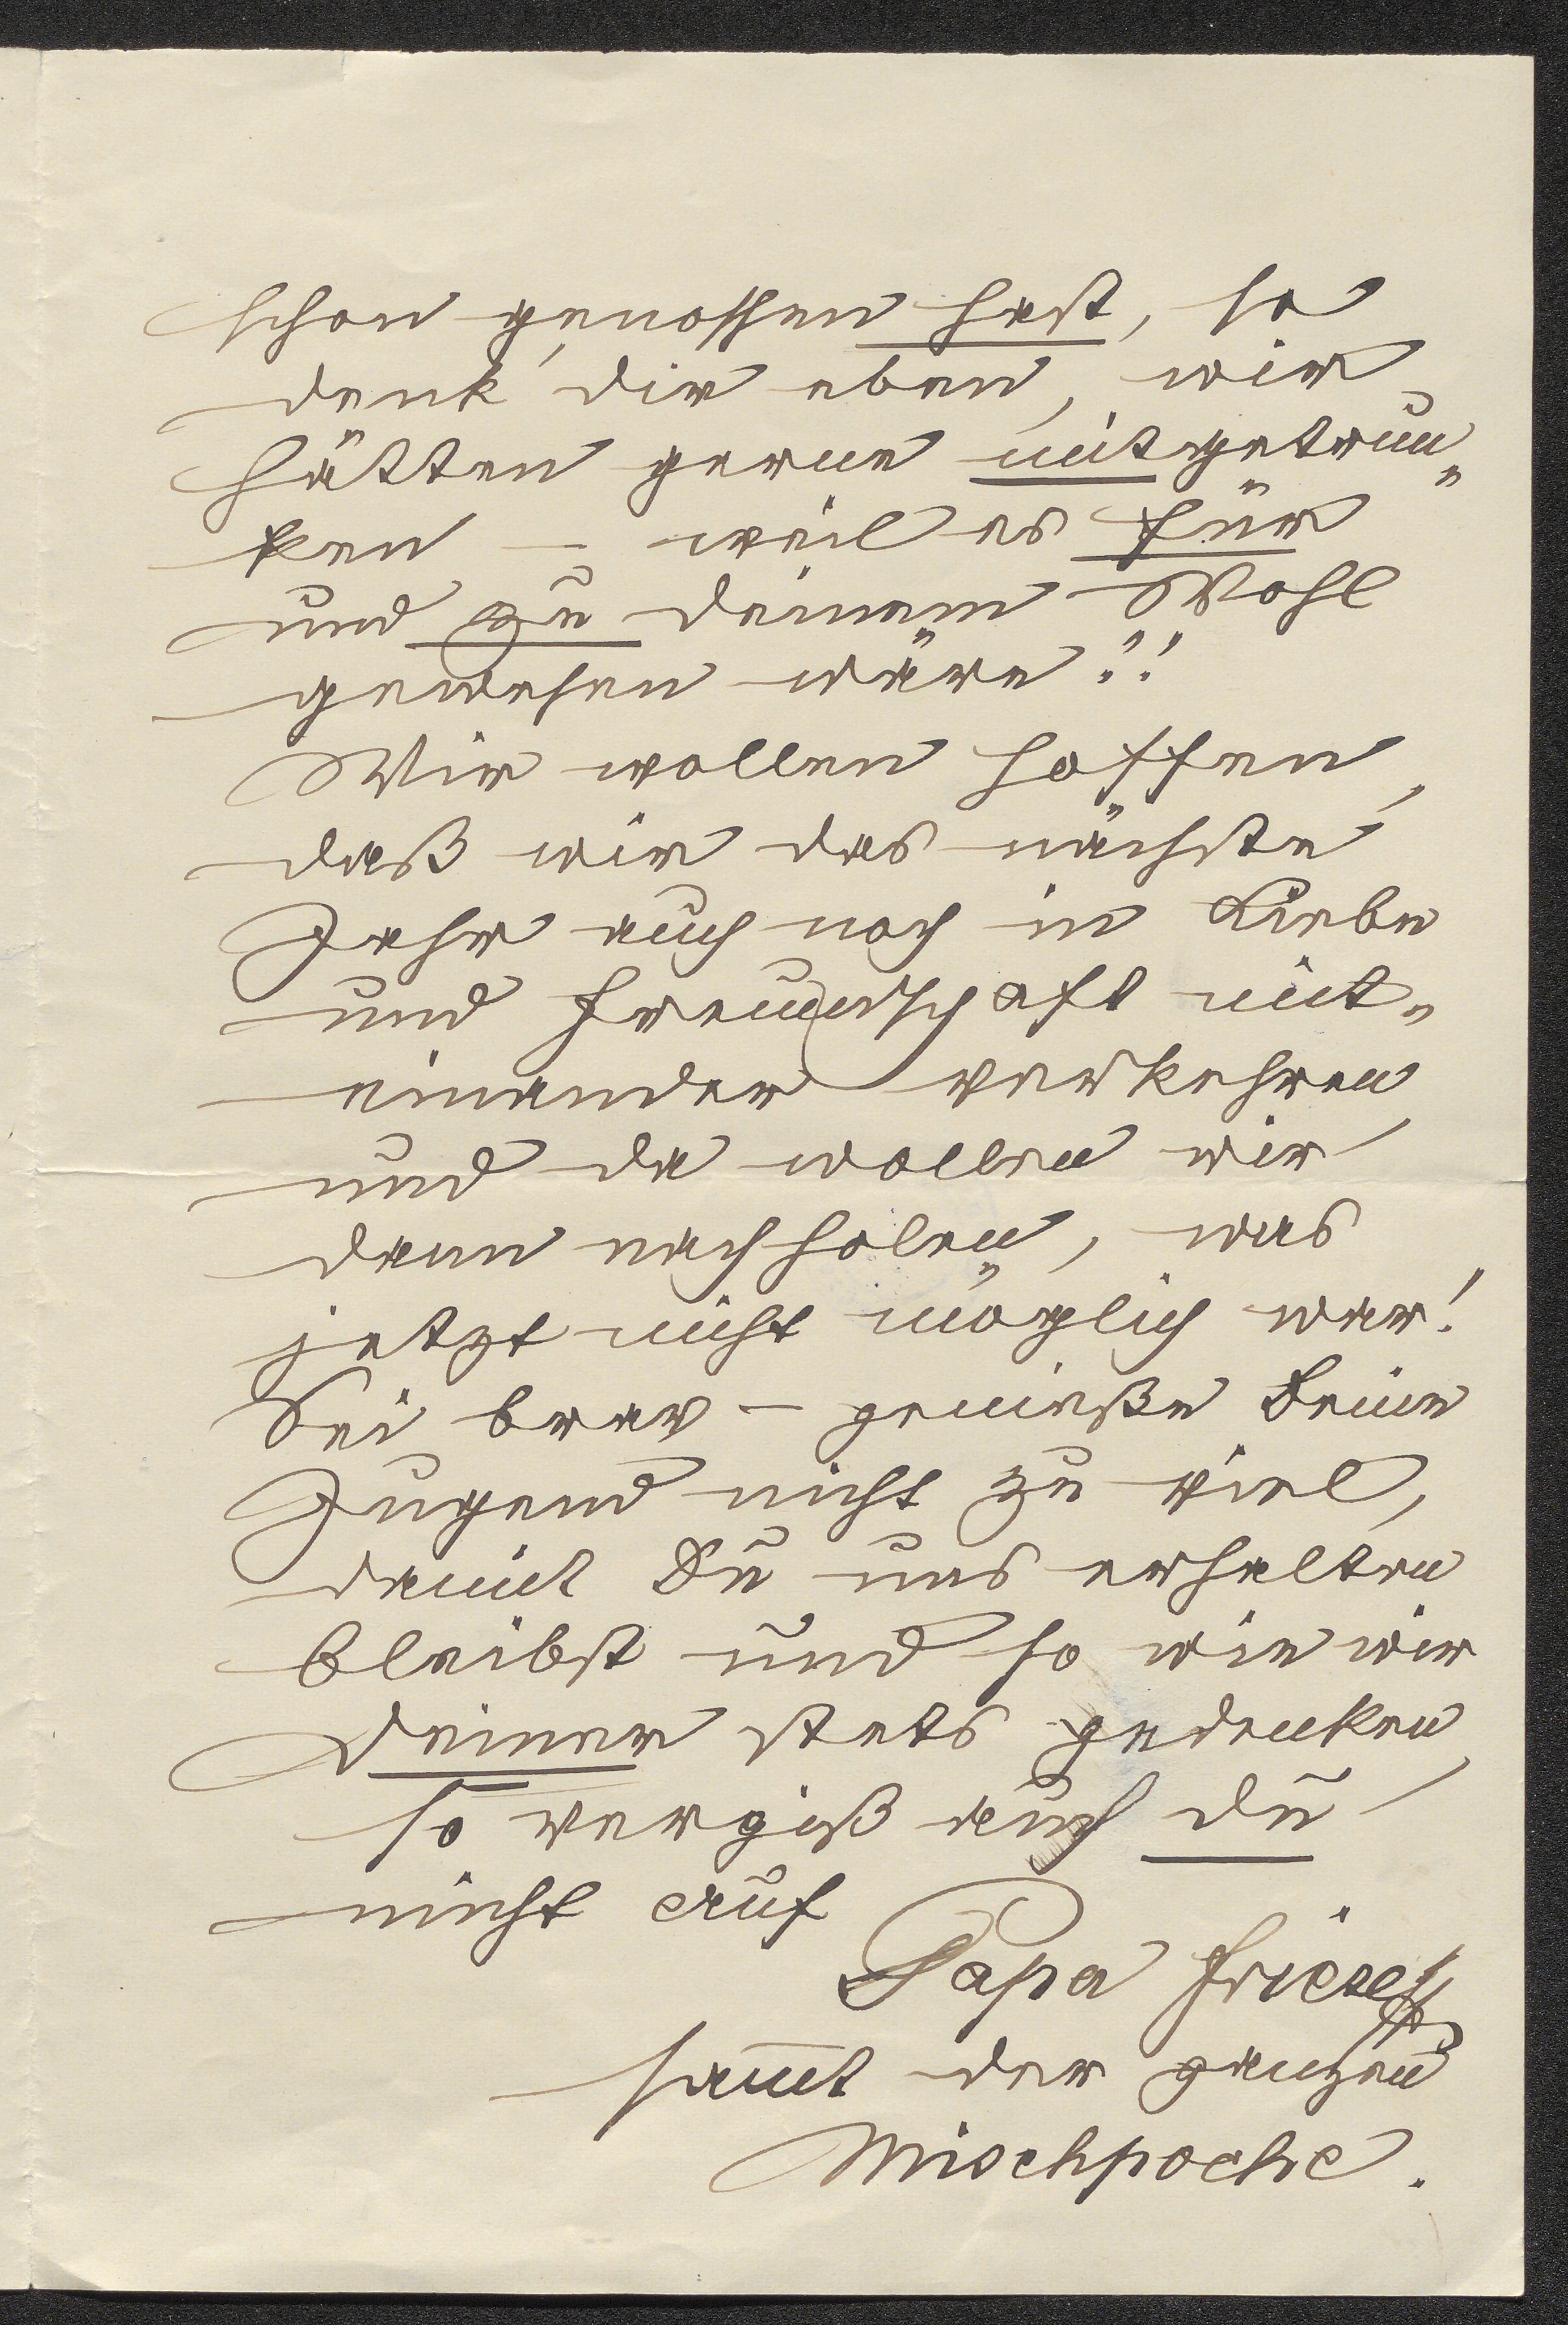 schon genossen hast, so
denk' dir eben, wir
hätten gerne mitgetrun„
ken – weil es für
und zu deinem Wohl
gewesen wäre!!
Wir wollen hoffen,
daß wir das nächste
Jahr auch noch in Liebe
und Freundschaft mit„
einander verkehren
und da wollen wir
dann nachholen, was
jetzt nicht möglich war!
Sei brav – genieße Deine
Jugend nicht zu viel,
damit Du uns erhalten
bleibst und so wie wir
deiner stets gedenken,
so vergiß auch du
nicht auf
Papa
sam̅t der ganzen
Mischpoche.